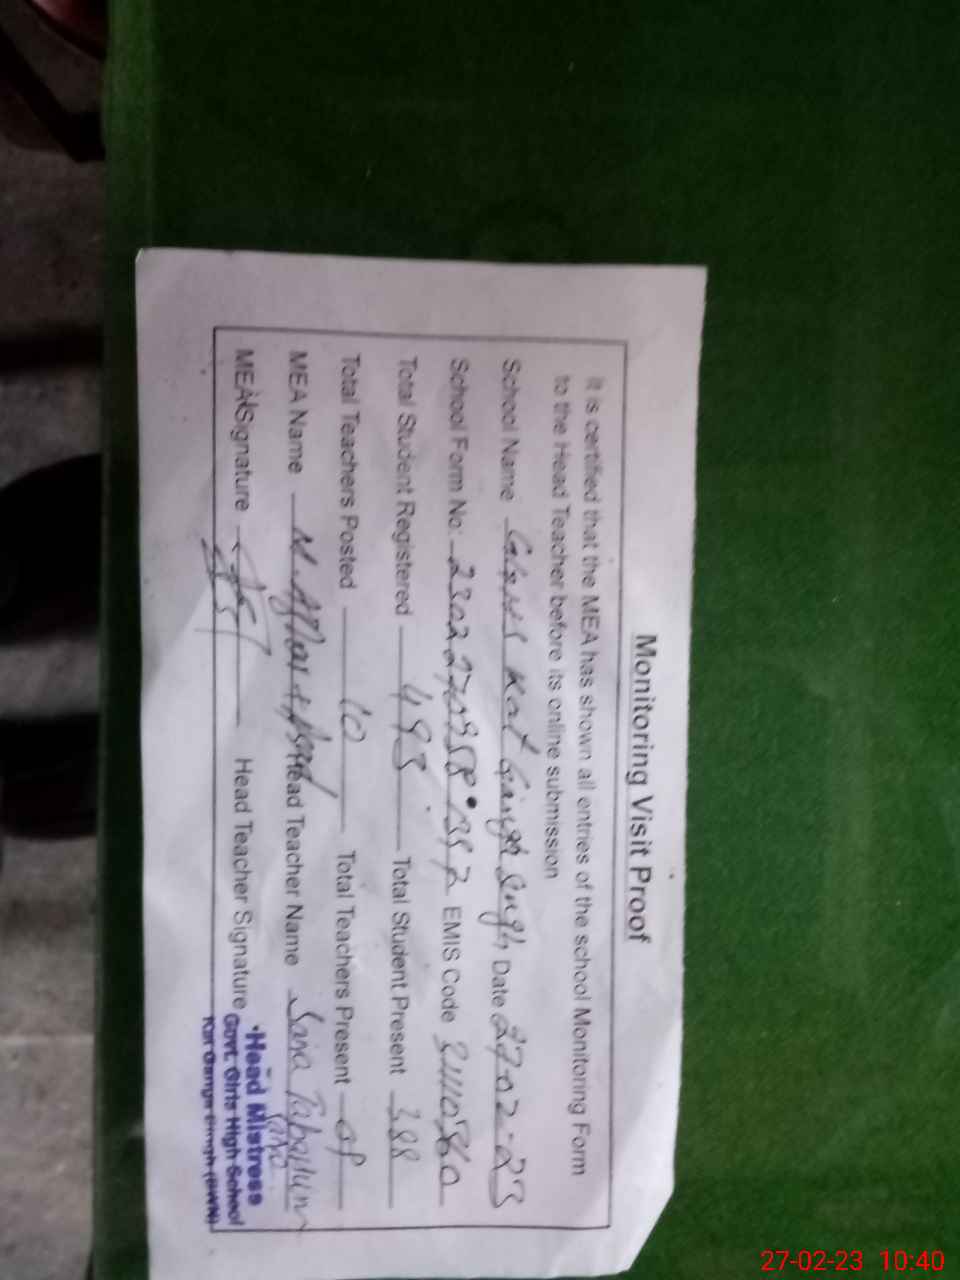 Monitoring Visit Proof
It is certified that the MEA has shown all entries of the school Monitoring Form
to the Head Teacher before its online submission
School Name Kot Ganga Singh Date 27-02-23
School Form No: EMIS Code
Total Student Registered 493 Total Student Present 388
Total Teachers Posted 10 Total Teachers Present
MEA Name Head Teacher Name Saira Tabassum
MEA Signature Head Teacher Signature
Head Mistress
Govt. Girls High School
Kot Ganga Singh (BWN)
27-02-23 10:40